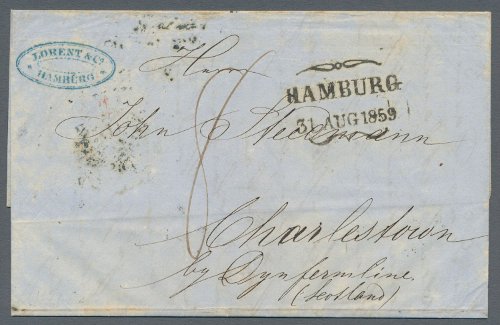 LORENT & Co.
HAMBURG
Herrn
HAMBURG
31 AUG 1859
John Stedemann
Charlestown
by Dynfermline
(Scotland)